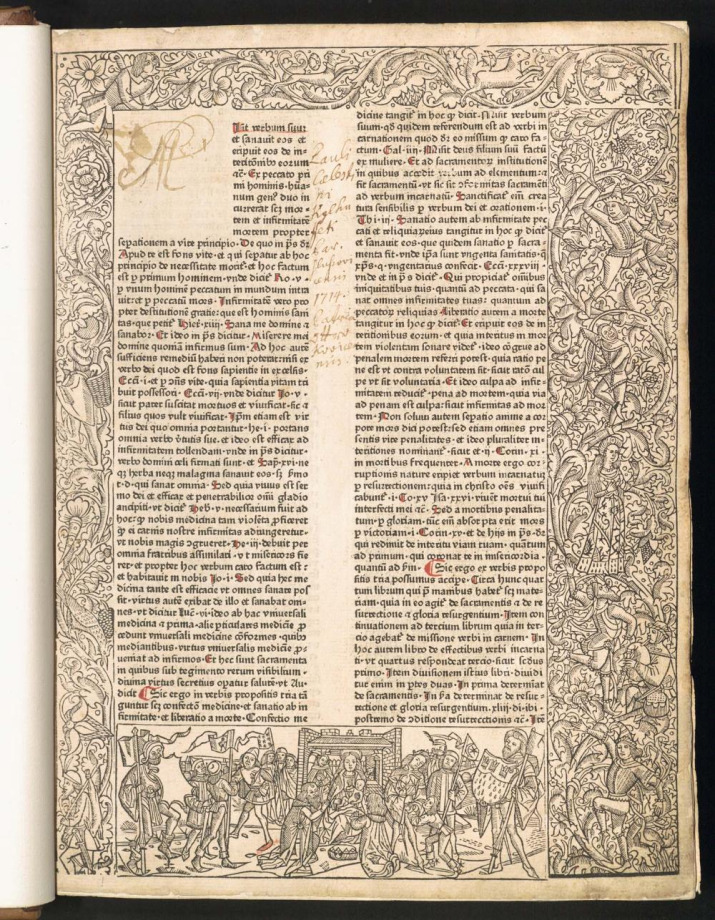 it verbum suum
et sanauit eos et
eripuit eos de in-
teritiōibꝰ eorum
⁊c· Ex peccato pri
mi hominis hūa-
num genꝰ duo in
currerat scꝫ mor-
tem et infirmitatē
mortem propter
separationem a vite principio· De quo in pͣs dꝛ
Apud te est fons vite· et qui separat ab hoc
principio de necessitate morit᷑· et hoc factum
est ꝑ primum hominem· vnde dicit᷑ Ro· v·
ꝑ vnum hominē peccatum in mundum intra
uit· et ꝑ peccatū mors· Infirmitatē vero pro
pter destitutionē gratie· que est hominis sani
tas· que petit᷑ Hieꝝ· xiiij· Sana me domine ⁊
sanabor· Et ideo in pͣs dicitur· Miserere mei
domine quoniā infirmus sum· Ad hoc autē
sufficiens remediū haberi non poterat· nisi ex
verbo dei quod est fons sapientie in excelsis·
Ecci· i· et ꝑ ꝯn̄s vite· quia sapientia vitam tri
buit possessori· Ecci· vij· vnde dicitur Jo· v·
sicut pater suscitat mortuos et viuificat· sic ⁊
filius quos vult viuificat· Ip̄m etiam est vir
tus dei quo omnia portantur· he· i· portans
omnia verbo v̄tutis sue· et ideo est efficax ad
infirmitatem tollendam· vnde in pͣs dicitur·
verbo domini celi firmati sunt· et Sap· xvi· ne
qꝫ herba neqꝫ malagma sanauit eos· sꝫ ẜmo
t· d· qui sanat omnia· Sed quia viuus est ser
mo dei et efficax et penetrabilior om̄i gladio
ancipiti· vt dicit᷑ Heb· v· necessarium fuit ad
hoc· ꝙ nobis medicina tam violēta ꝓficeret
ꝙ ei carnis nostre infirmitas adiungeretur·
vt nobis magis ꝯgrueret· He· ij· debuit per
omnia fratribus assimilari· vt misericors fie
ret· et propter hoc verbum caro factum est·
et habitauit in nobis Jo· i· Sed quia hec me
dicina tante est efficacie vt omnes sanare pos
sit· virtus autē exibat de illo et sanabat om-
nes· vt dicitur Luc̄· vi· ideo ab hac vniuersali
medicina ⁊ prima· alie ꝑticulares medicīe ꝓ
cedunt vniuersali medicine ꝯformes· quibꝰ
mediantibus· virtus vniuersalis medicīe ꝑ-
ueniat ad infirmos· Et hec sunt sacramenta
in quibus sub tegimento rerum visibilium·
diuina virtus secretius opatur salutē· vt Au-
dicit Sic ergo in verbis propositis tria tā
guntur scꝫ confectō medicine· et sanatio ab in
firmitate· et liberatio a morte· Confectio me
1714·
dicine tangit᷑ in hoc ꝙ dicit· Misit verbum
suum· qd̄ quidem referendum est ad verbi in
carnationem quod dꝛ eo missum ꝙ caro fa-
ctum· Gal· iiij· Misit deus filium suū factū
ex muliere· Et ad sacramentoꝝ institutionē
in quibus accedit verbum ad elementum· ⁊
fit sacramentū· vt sic sit ꝯformitas sacramēti
ad verbum incarnatū· Sanctificat᷑ em̄ crea
tura sensibilis ꝑ verbum dei et orationem· i·
Thi· iiij· Sanatio autem ab infirmitate pec
cati et reliquiaꝝ eius tangitur in hoc ꝙ dicit᷑
et sanauit eos· que quidem sanatio ꝑ sacra-
menta fit· vnde ip̄a sunt vngenta sanitatis· q̄
xp̄s· q· vngentacius confecit· Ecci· xxxviij·
vnde et in pͣs dicit᷑· Qui propiciat᷑ om̄ibus
iniquitatibus tuis· quantū ad peccata· qui sa
nat omnes infirmitates tuas· quantum ad
peccatoꝝ reliquias· Liberatio autem a morte
tangitur in hoc ꝙ dicit᷑· Et eripuit eos de in
teritionibus eorum· et quia interitus in mor
tem violentam sonare videt᷑· ideo ꝯgrue ad
penalem mortem referri potest· quia ratio pe
ne est vt contra voluntatem sit· sicut ratō cul
pe vt sit voluntaria· Et ideo culpa ad infir-
mitatem reducit᷑· pena ad mortem· quia via
ad penam est culpa· sicut infirmitas ad mor
tem· Non soluꝫ autem sepatio anime a cor
pore mors dici potest· sed etiam omnes pre
sentis vite penalitates· et ideo pluraliter in-
teritiones nominant᷑· sicut et· ij· Corin· xi·
in mortibus frequenter· A morte ergo cor-
ruptionis nature eripiet verbum incarnatū
ꝑ resurrectionem· quia in christo oēs viuifi
cabunt᷑· i· Co· xv Isa· xxvi· viuēt mortui tui
interfecti mei ⁊c· Sed a mortibus penalita-
tum· ꝑ gloriam· tūc em̄ absorpta erit mors
ꝑ victoriam· i· Corin· xv· et de hijs in pͣs· dꝛ
qui redimit de interitu viam tuam· quātum
ad primum· qui coronat te in misericordia·
quantū ad ẜm· Sic ergo ex verbis propo
sitis tria possumus accipe· Circa hunc quar
tum librum qui p̄ manibus habet᷑ scꝫ mate-
riam· quia in eo agit᷑ de sacramentis ⁊ de re
surrectione ⁊ gloria resurgentium· Item con
tinuationem ad tercium librum· quia in ter-
cio agebat᷑ de missione verbi in carnem· In
hoc autem libro de effectibus verbi incarna
ti· vt quartus respondeat tercio· sicut scḋus
primo· Item diuisionem istius libri· diuidi
tur enim in ptes duas· In prima determiat᷑
de sacramentis· In ẜa determinat de resur-
rectione et gloria resurgentium· xliij· di· ibi·
postremo de ꝯditione resurrectionis ⁊c· Itē